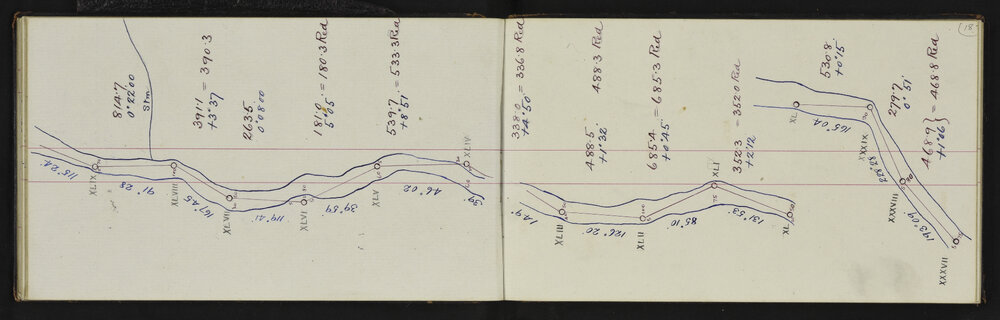 814.7
0° 22'00
Stm.
391.1 = 390.3
+3°37
263.5
0°08'00
181.0 = 180.3 Red
5°05'
539.7 = 533.3 Red
+8°51'
115° 24'
XLIX
91° 28
XLVIII
167° 45
XLVII
119° 21'
XLVI
39° 59'
XLV
46° 02
XLIV
18)
338.0 = 336.8 Red
+4°50'
488.5 488.3 Red
+1°32'
685.4 = 685.3 Red
+0°45'
352.3 = 352.0 Red
+2°12
530.8
+0°15'
279.7
0° 51'
468.9 } = 468.8 Red
+1°06'
149°
XLIII
126° 20'
XLII
85° 10'
XLI
131° 53'
XL
XL
165° 04
XXXIX
XXXVIII
193° 09'
XXXVII